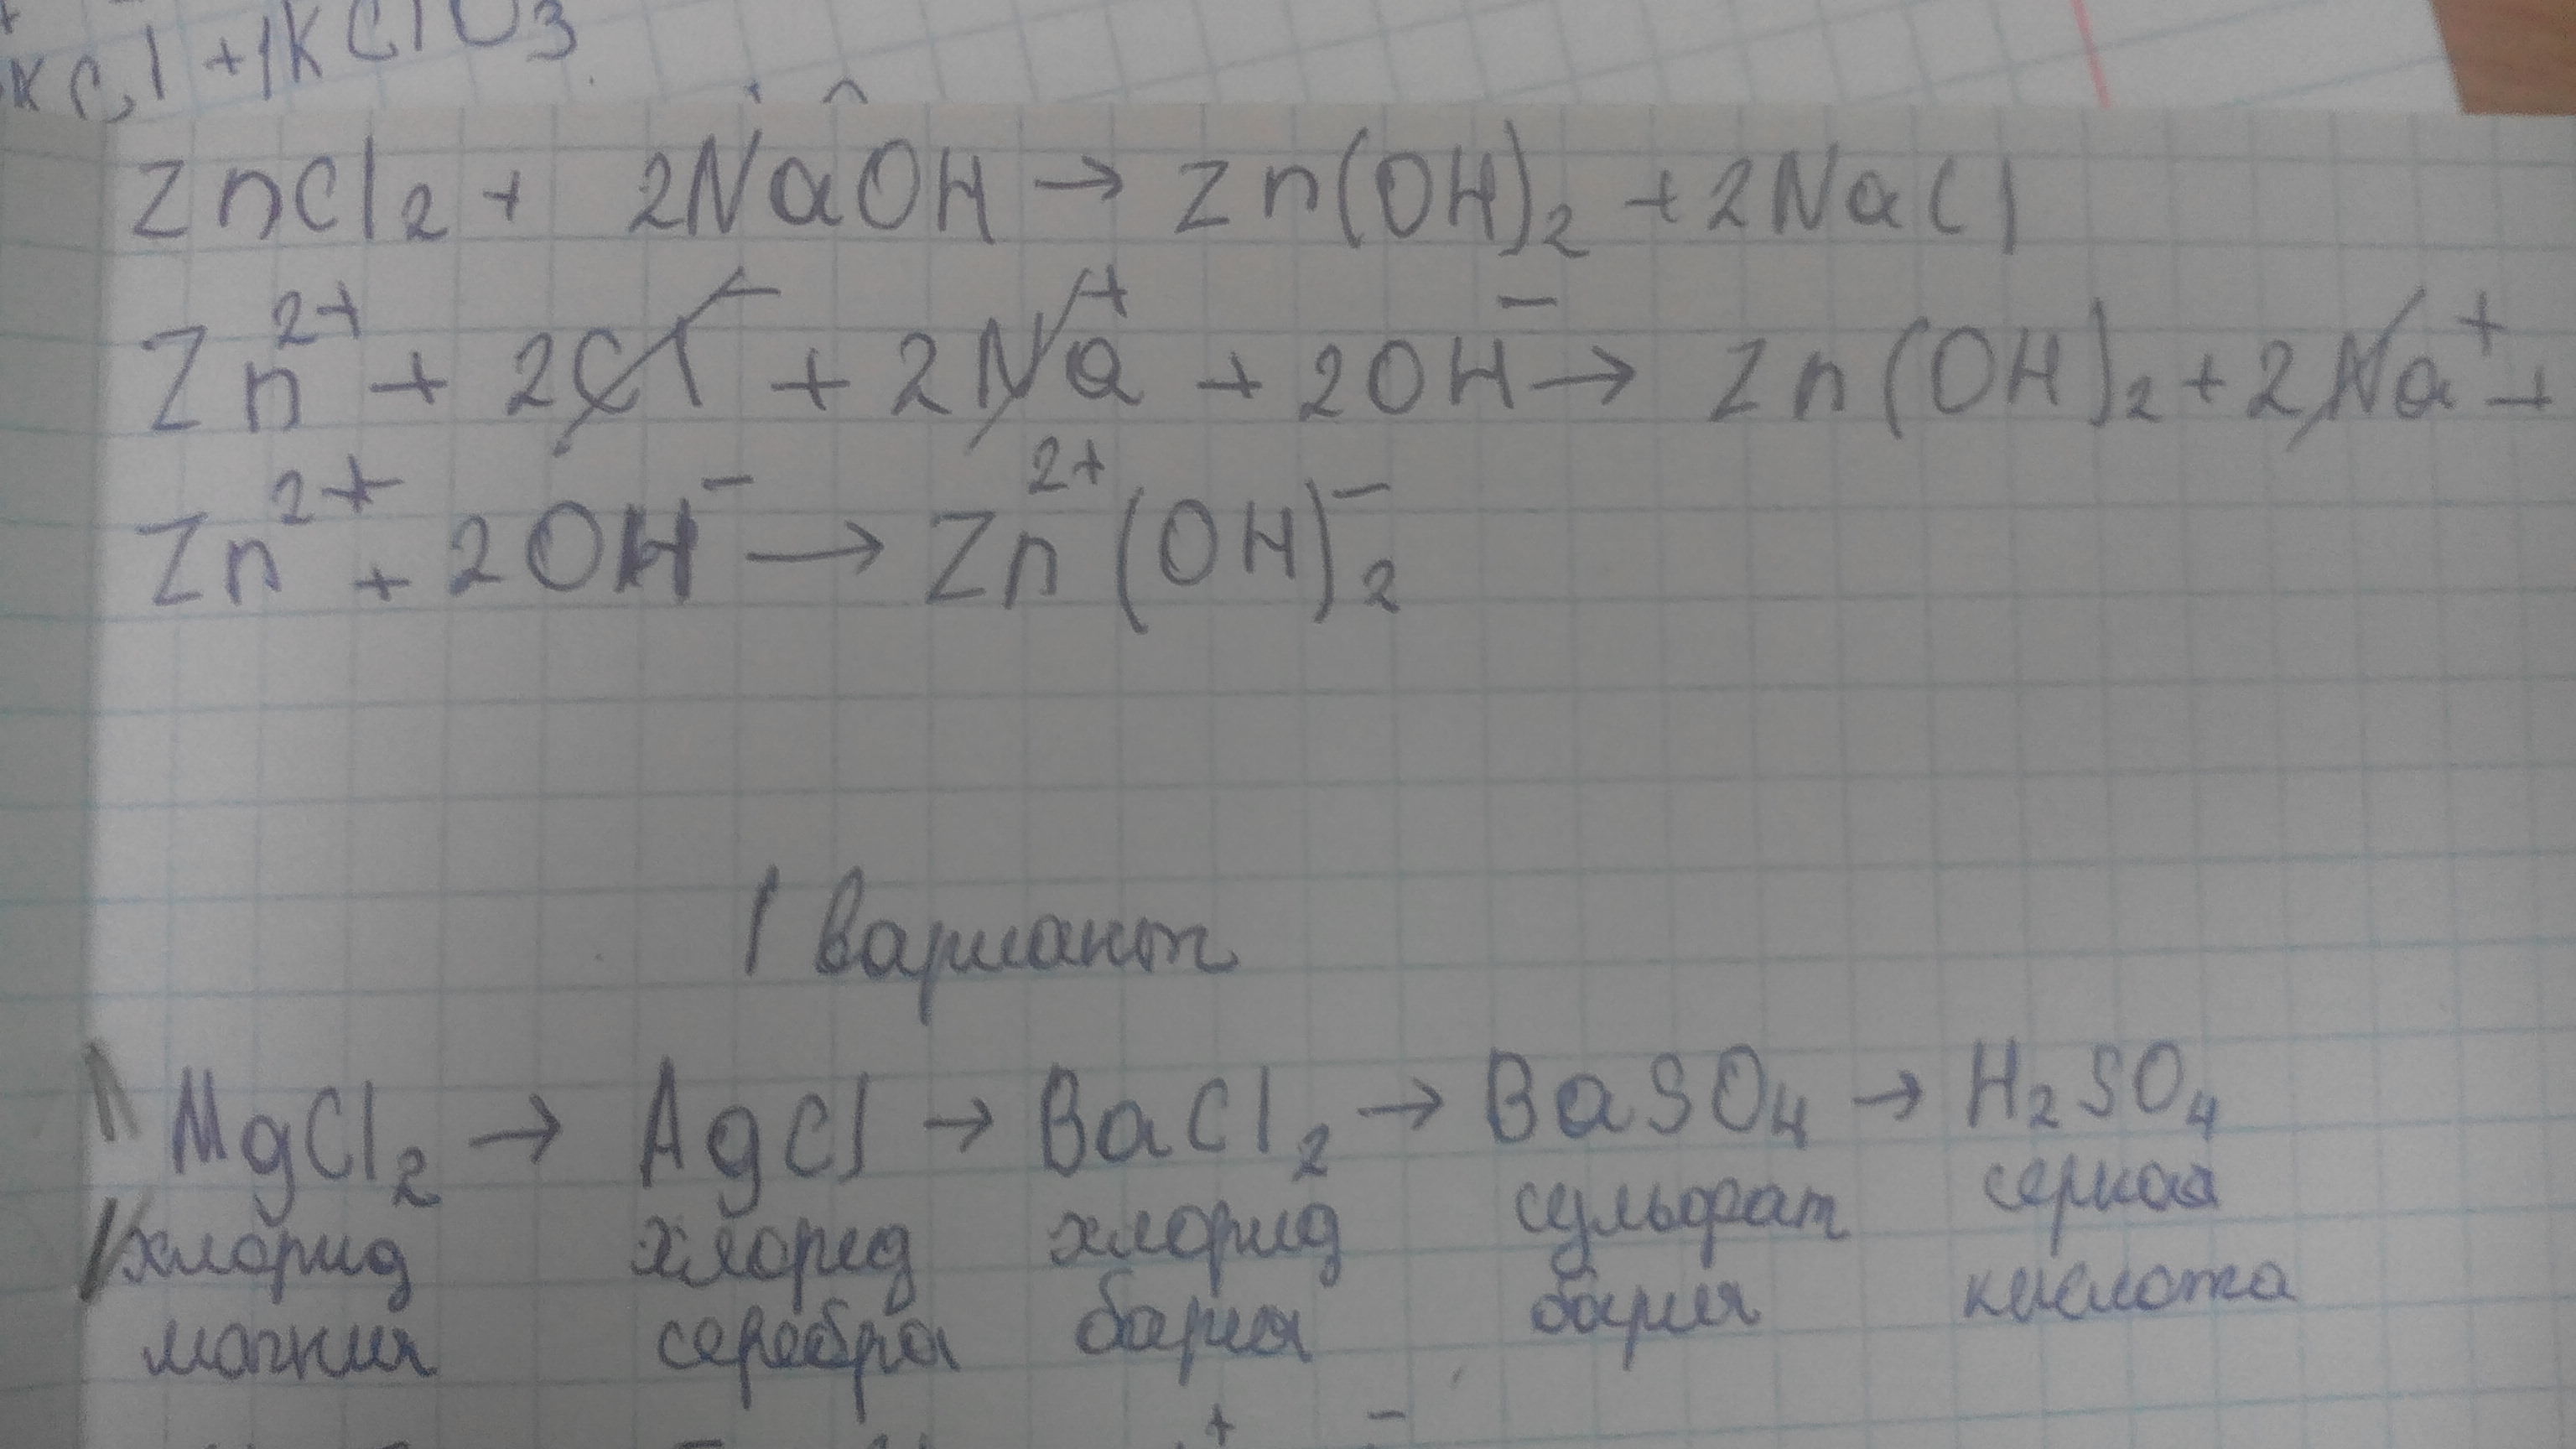 KCl + 1KClO3
ZnCl2 + 2NaOH → Zn(OH)2 + 2NaCl
Zn2+ + 2Cl− + 2Na+ + 2OH− → Zn(OH)2 + 2Na+ +
Zn2+ + 2OH− → Zn2+(OH)−2
1 вариант
MgCl2 → AgCl → BaCl2 → BaSO4 → H2SO4
хлорид хлорид хлорид сульфат серная
магния серебра бария бария кислота